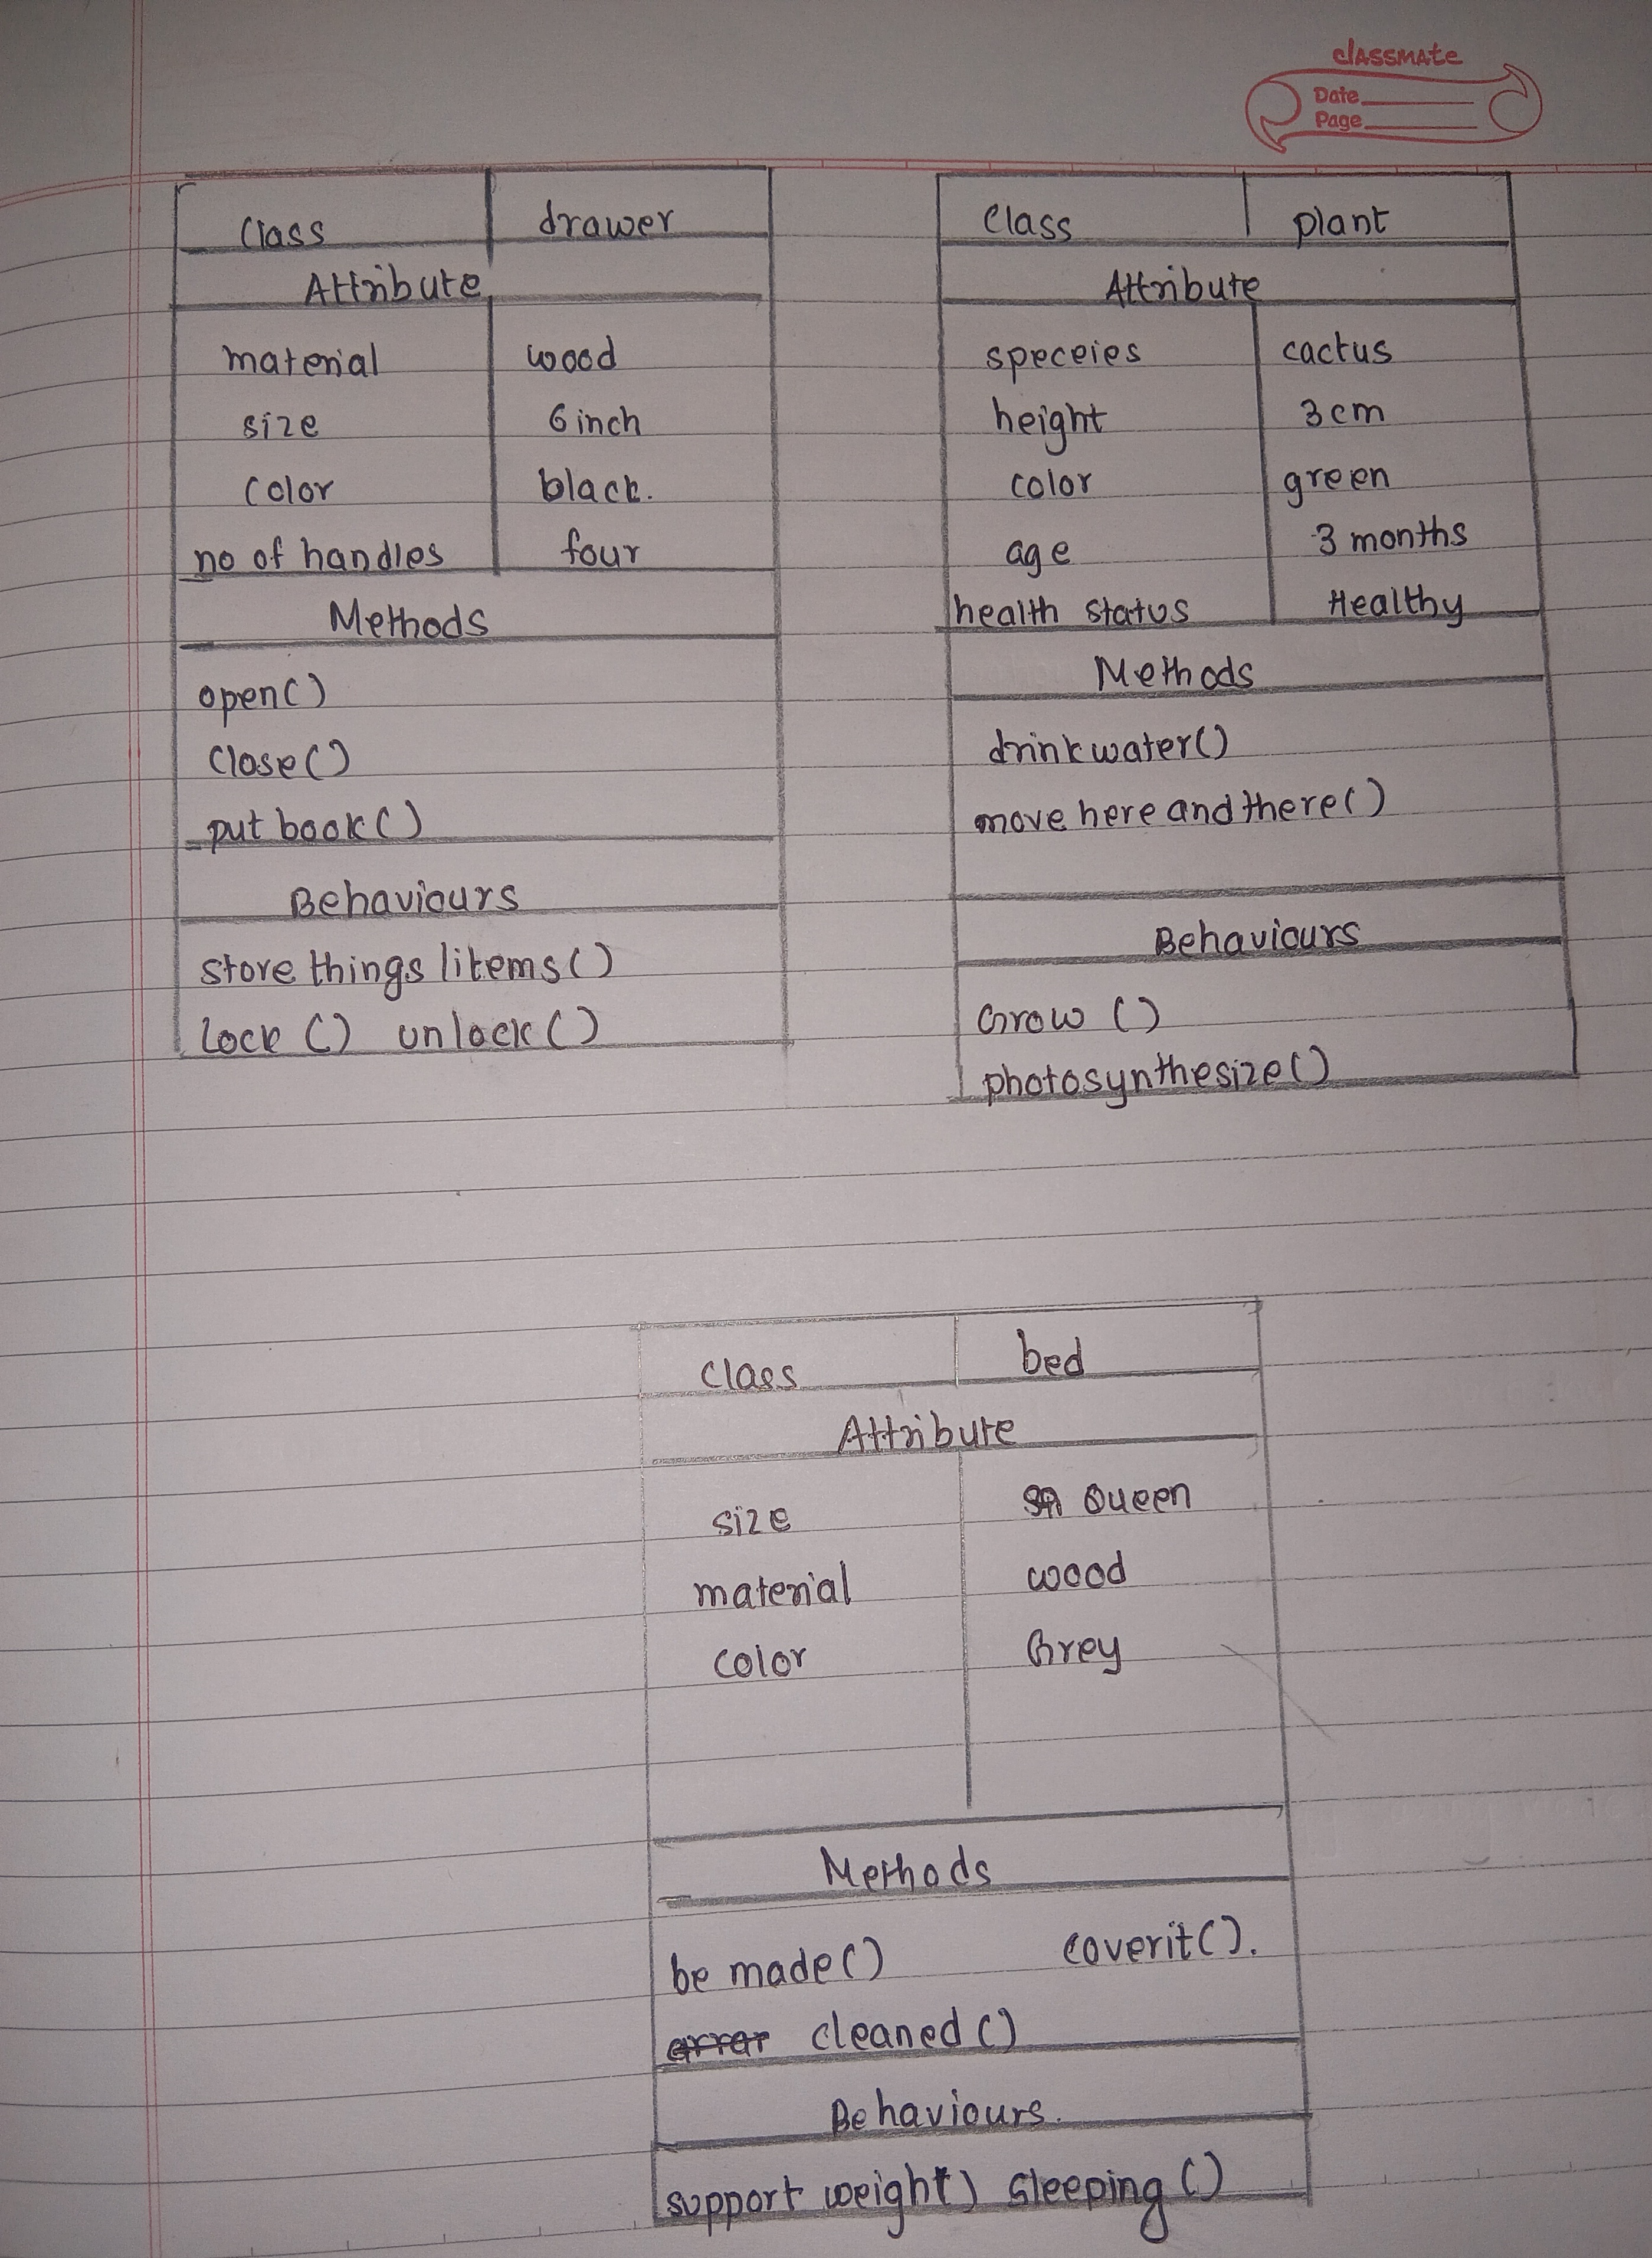 classmate
Date
Page
Class drawer
Attribute
material wood
size 6 inch
color black.
no of handles four
Methods
open()
close()
put book()
Behaviours
store things litems()
Lock () unlock()
Class plant
Attribute
speceies cactus
height 3 cm
color green
age 3 months
health status Healthy
Methods
drink water()
move here and there()
Behaviours
Grow ()
photosynthesize()
class bed
Attribute
size Queen
material wood
color Grey
Methods
be made() coverit().
cleaned ()
Behaviours.
support weight) Sleeping ()